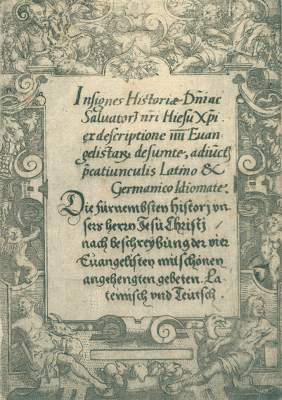 Insignes Historiæ Dn̄i ac
Salvatorı̄ nr̄i Hiesu Xpi
ex descriptione IIII Euan
gelistarꝫ desumte, adiunct̄
p̄catiunculis Latino &
Germanico Idiomate.
Die fürnembsten histori vn
sers herrn Jesü Christj
nach beschreybüng der vier
Euangelisten mit schönen
angehengten gebeten. La
teinisch vnd Teütsch.